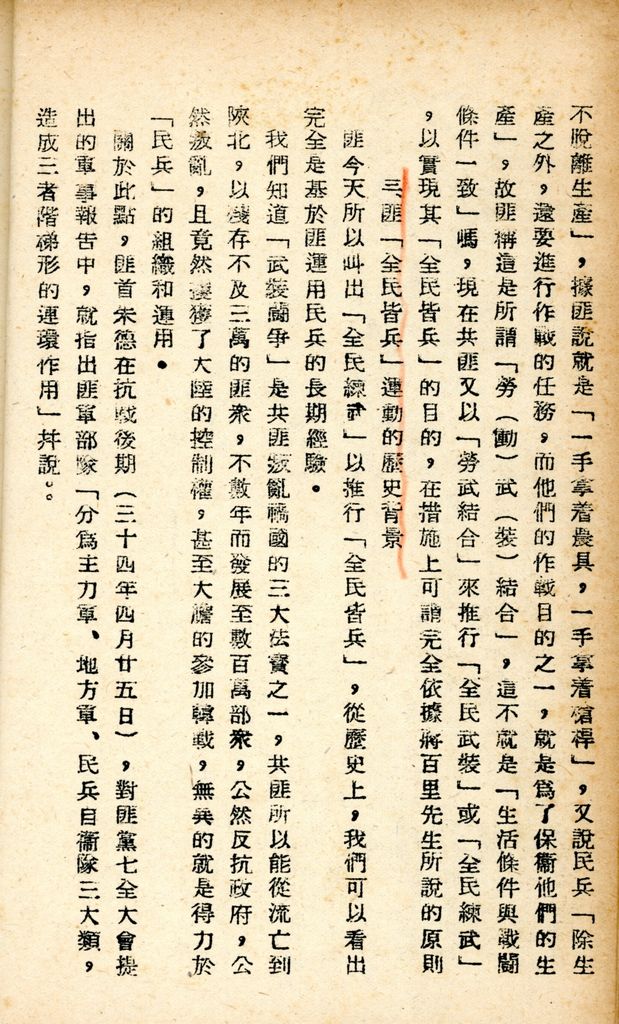 不脫離生產」，據匪說就是「一手拿着農具，一手拿着槍桿」，又說民兵「除生
產之外，還要進行作戰的任務，而他們的作戰目的之一，就是爲了保衞他們的生
產」，故匪稱這是所謂「勞（動）武（裝）結合」，這不就是「生活條件與戰鬪
條件一致」嗎，現在共匪又以「勞武結合」來推行「全民武裝」或「全民練武」
，以實現其「全民皆兵」的目的，在措施上可謂完全依據蔣百里先生所說的原則
三、匪「全民皆兵」運動的歷史背景
匪今天所以叫出「全民練武」以推行「全民皆兵」，從歷史上，我們可以看出
完全是基於匪運用民兵的長期經驗。
我們知道「武裝鬪爭」是共匪叛亂禍國的三大法寶之一，共匪所以能從流亡到
陝北，以殘存不及三萬的匪衆，不數年而發展至數百萬部衆，公然反抗政府，公
然叛亂，且竟然攫獲了大陸的控制權，甚至大膽的參加韓戰，無異的就是得力於
「民兵」的組織和運用。
關於此點，匪首朱德在抗戰後期（三十四年四月廿五日），對匪黨七全大會提
出的軍事報告中，就指出匪軍部隊「分爲主力軍、地方軍、民兵自衞隊三大類，
造成三者階梯形的連環作用」幷說。。